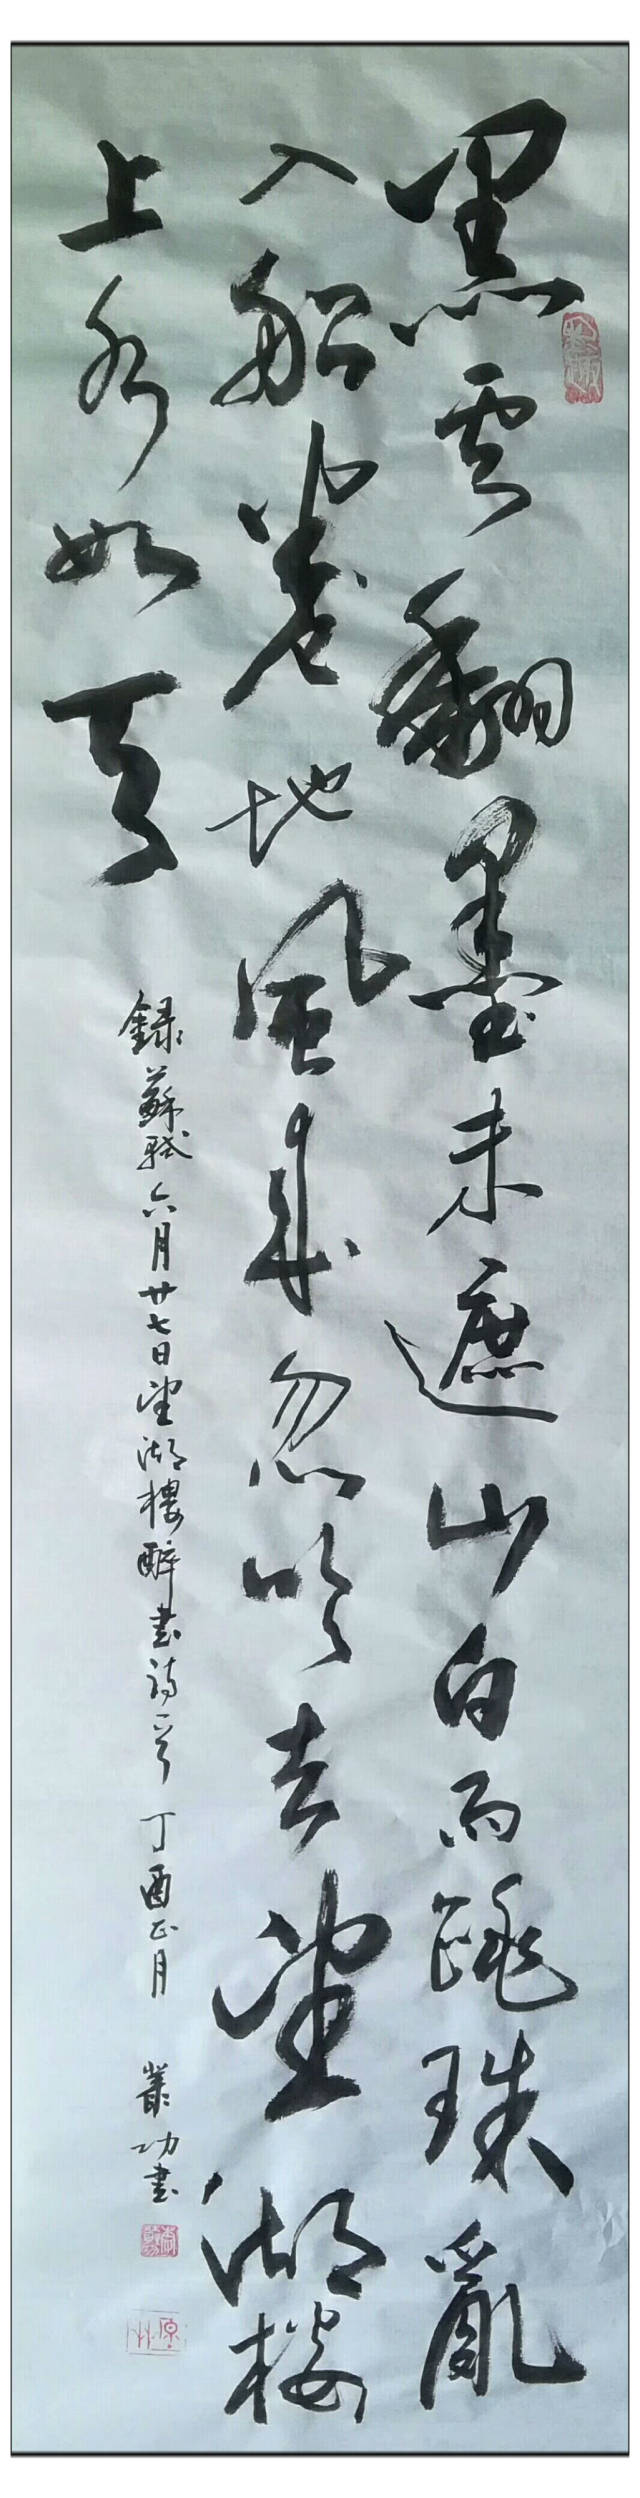 黑雲翻墨未遮山白雨跳珠亂
入船卷地風來忽吹去望湖楼
上水如天
錄蘇軾六月廿七日望湖樓醉書詩一首 丁酉正月 叢功書